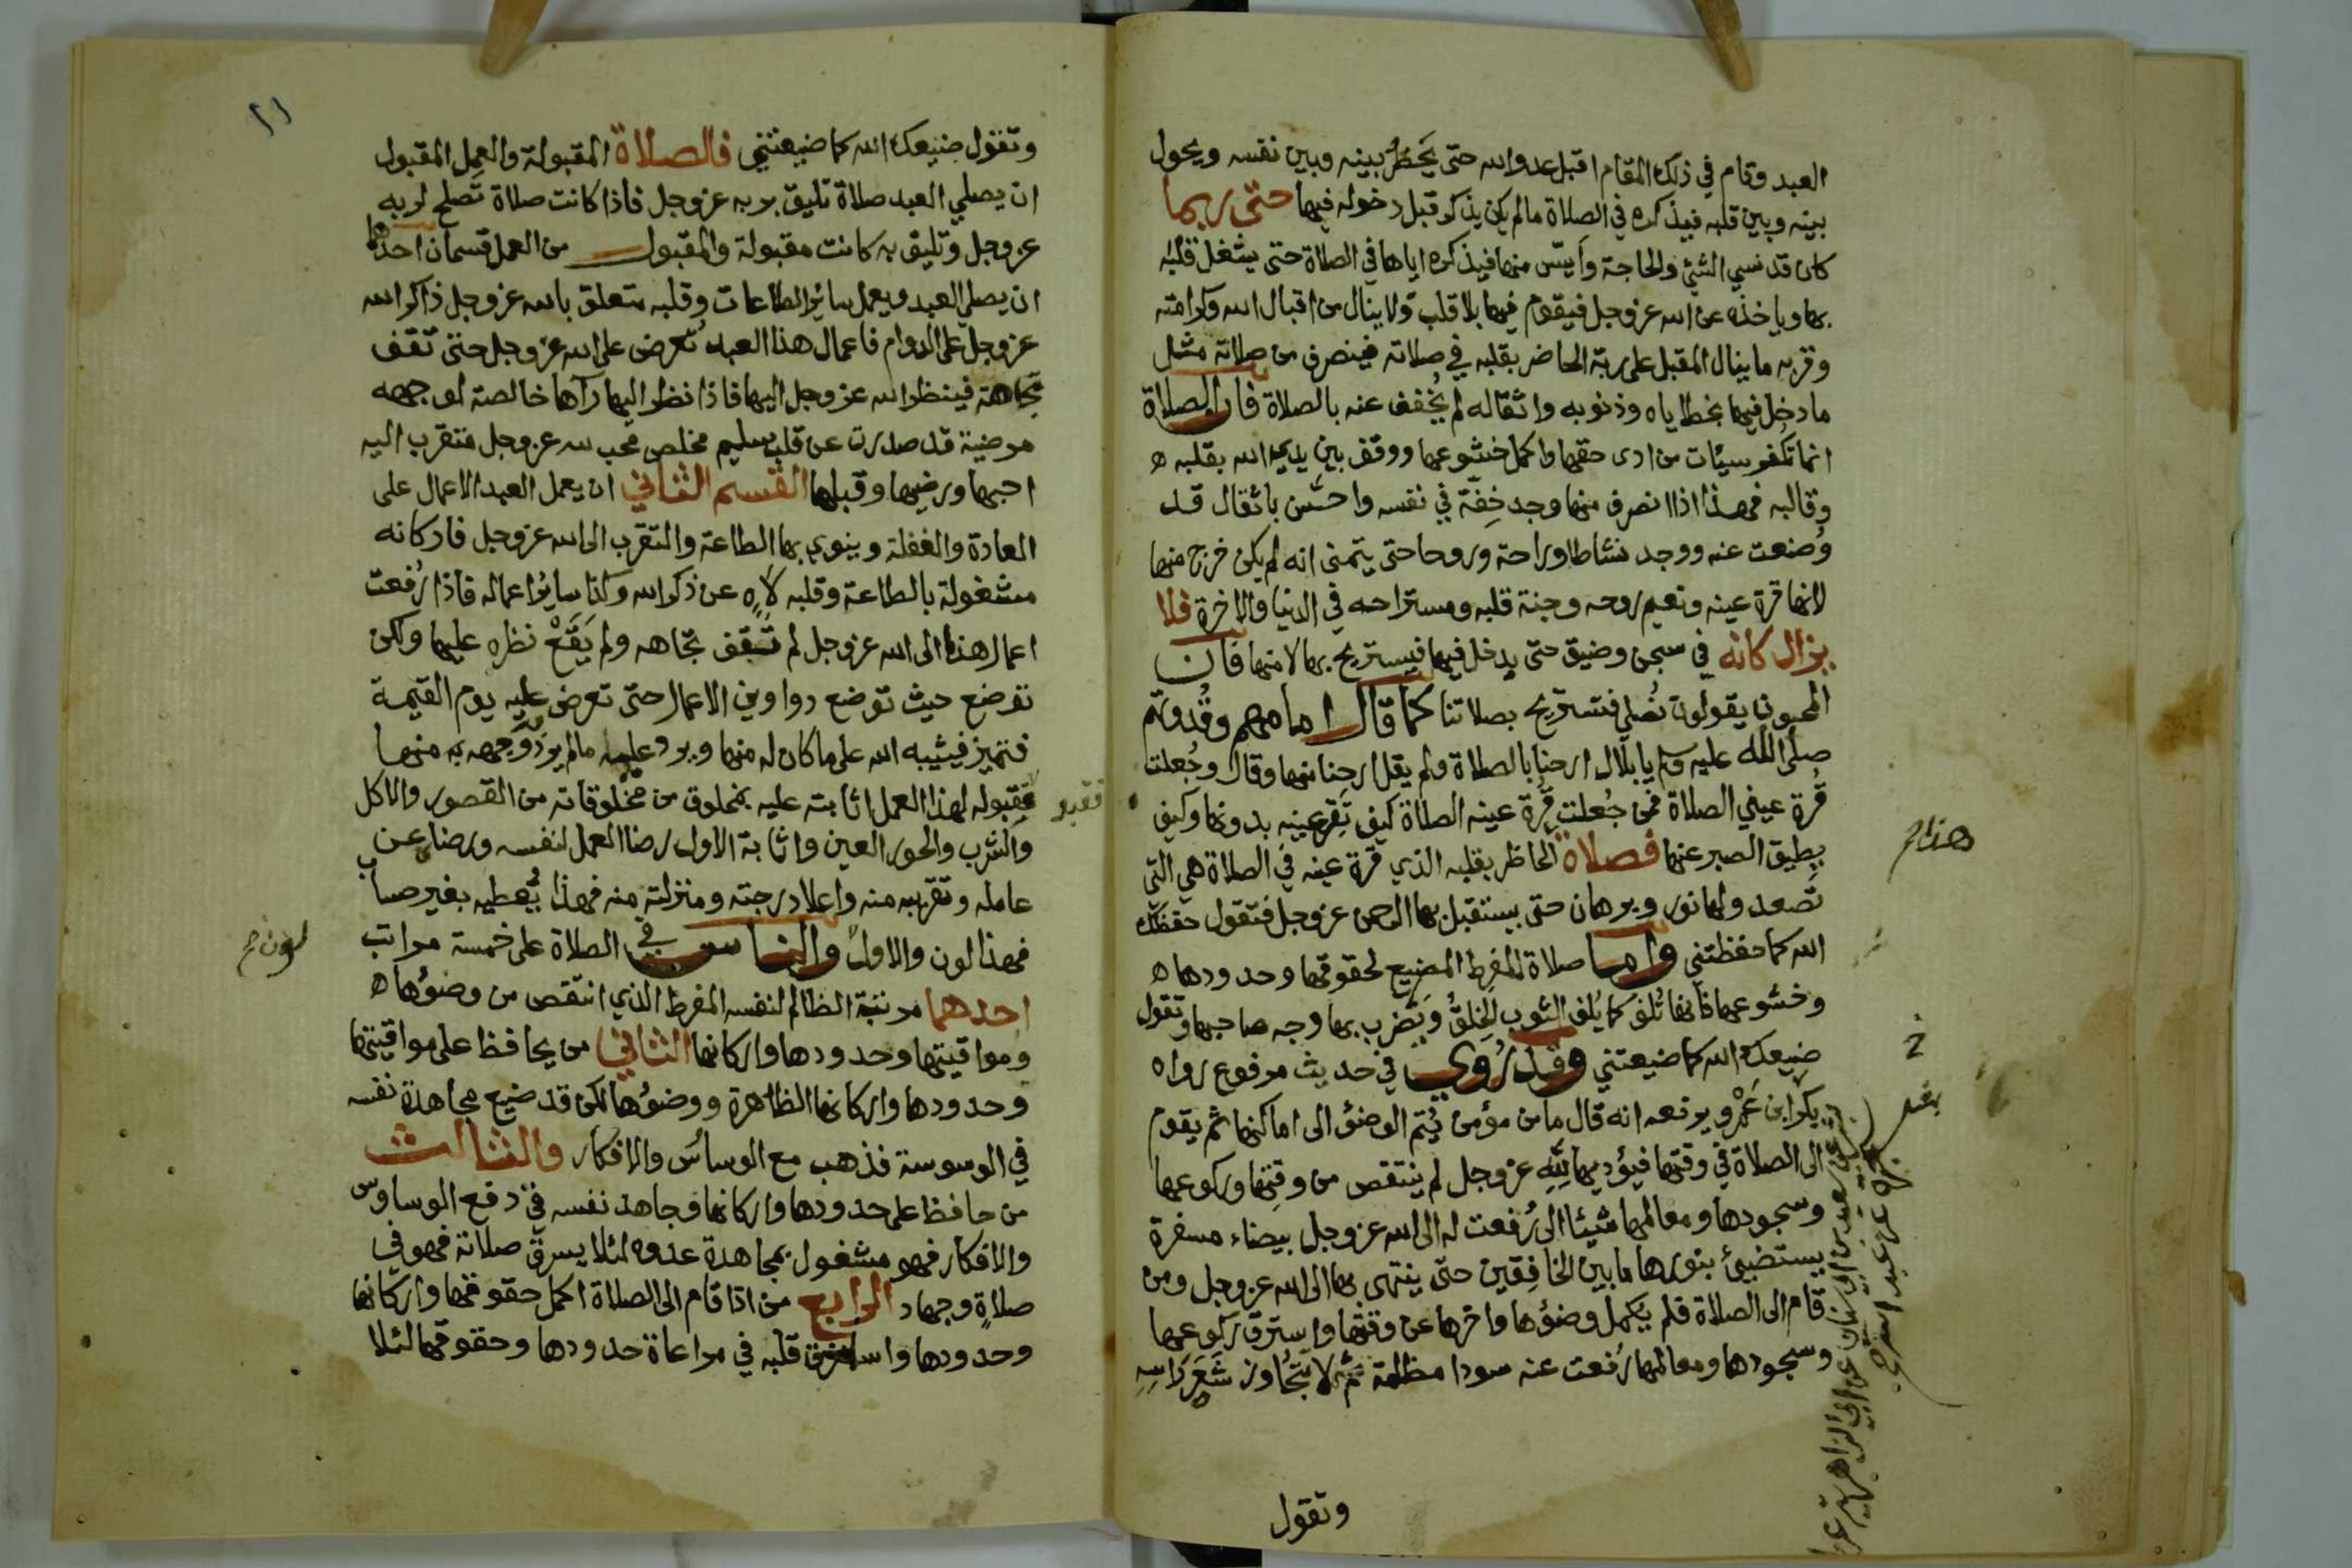 العبد وقام في ذلك المقام اقبل عدو الله حتى يَخطُرُ بينه وبين نفسه ويحول
بينه وبين قلبه فيذكره في الصلاة مالم يكن يذكر قبل دخوله فيها حتى ربما
كان قد نسي الشئ والحاجة وأيس منها فيذكره اياها في الصلاة حتى يشغل قلبه
بها وياخذه عن الله عز وجل فيقوم فيها بلا قلب ولا ينال من اقبال الله وكرامته
وقربه ما ينال المقبل على ربه الحاضر بقلبه في صلاته فينصرف من صلاته مثل
ما دخل فيها بخطاياه وذنوبه واثقاله لم يُخفف عنه بالصلاة فان الصلاة
انما تكفر سيئات من ادى حقها واكمل خشوعها ووقف بين يدي الله بقلبه ه
وقالبه فهذا اذا انصرف منها وجد خِفّة في نفسه واحسّ باثقال قد
وُضعت عنه ووجد نشاطا وراحة وروحا حتى يتمنى انه لم يكن خرج منها
لانها قرة عينه ونعيم روحه وجنة قلبه ومستراحه في الدنيا والاخرة فلا
يزال كانه في سجن وضيق حتى يدخل فيها فيستريح بها لا منها فان
المحبون يقولون نُصلي فنستريح بصلاتنا كما قال امامهم وقُدوتهم
صلى الله عليه وسلم يا بلال ارحنا بالصلاة ولم يقل ارحنا منها وقال وجُعلت
قُرة عيني الصلاة فمن جُعلت قُرة عينه الصلاة كيف تَقِر عينه بدونها وكيف
يطيق الصبر عنها فصلاة الحاظر بقلبه الذي قرة عينه في الصلاة هي التي
تصعد ولها نور وبرهان حتى يستقبل بها الرحمن عز وجل فتقول حفظك
الله كما حفظتني واما صلاة المفرط المضيع لحقوقها وحدودها ه
وخشوعها فانها تُلف كما يُلف الثوب الخلِقُ ويَضرب بها وجه صاحبها وتقول
ضيعك الله كما ضيعتني وقد رُوي في حديث مرفوع رواه
بكر ابن عَمْرٍو يرفعه انه قال ما من مؤمن يُتم الوضؤ الى اماكنها ثم يقوم
الى الصلاة في وقتها فيؤديها لِلّهِ عز وجل لم ينتقص من وقتها وركوعها
وسجودها ومعالمها شيئا الى رُفعت له الى الله عز وجل بيضاء مسفرة
يستضيئ بنورها ما بين الخافِقين حتى ينتهى بها الى الله عز وجل ومن
قام الى الصلاة فلم يكمل وضؤها واخرها عن وقتها واسترق ركوعها
وسجودها ومعالمها رُفعت عنه سودا مظلمة ثم لا تُجاوز شَعَر رَاسِهِ
وتقول
١١
وتقول ضيعك الله كما ضيعتني فالصلاة المقبولة والعمل المقبول
ان يصلي العبد صلاة تليق بربه عز وجل فاذا كانت صلاة تصلح لربه
عز وجل وتليق به كانت مقبولة والمقبول من العمل قسمان احدهما
ان يصلي العبد ويعمل سائر الطاعات وقلبه متعلق بالله عز وجل ذاكر الله
عز وجل على الدوام فاعمال هذا العبد تُعرض على الله عز وجل حتى تقف
تجاهه فينظر الله عز وجل اليها فاذا نظر اليها رآها خالصة لوجهه
مرضية قد صدرت عن قلب سليم مخلص محب لله عز وجل متقرب اليه
احبها ورضيها وقبلها القسم الثاني ان يعمل العبد الاعمال على
العادة والغفلة وينوي بها الطاعة والتقرب الى الله عز وجل فاركانه
مشغولة بالطاعة وقلبه لاهٍ عن ذكر الله وكذا سائر اعماله فاذا رُفعت
اعمال هذا الى الله عز وجل لم تقف تجاهه ولم يَقَعْ نظره عليها ولكن
توضع حيث توضع دواوين الاعمال حتى تعرض عليه يوم القيمة
فتميز فيثيبه الله على ما كان له منها ويرد عليه مالم يرد وجهه به منها
فقبوله لهذا العمل اثابته عليه بمخلوق من مخلوقاته من القصور والاكل
والشرب والحور العين واثابة الاول رضا العمل لنفسه ورضا عن
عامله وتقريبه منه واعلا درجته ومنزلته منه فهذا يُعطيه بغير حساب
فهذا لون والاول والناس في الصلاة على خمسة مراتب
لون ح
احدهما مرتبة الظالم لنفسه المفرط الذي انتقص من وضوُها ه
ومواقيتها وحدودها واركانها الثاني من يحافظ على مواقيتها
وحدودها واركانها الظاهرة ووضوُها لكن قد ضيع مجاهدة نفسه
في الوسوسة فذهب مع الوساس والافكار والثالث
من حافظ على حدودها واركانها وجاهد نفسه في دفع الوساوس
والافكار فهو مشغول بمجاهدة عدوه لئلا يسرق صلاته فهو في
صلاةٍ وجهاد الرابع من اذا قام الى الصلاة اكمل حقوقها واركانها
وحدودها واستغرق قلبه في مراعاة حدودها وحقوقها لئلا